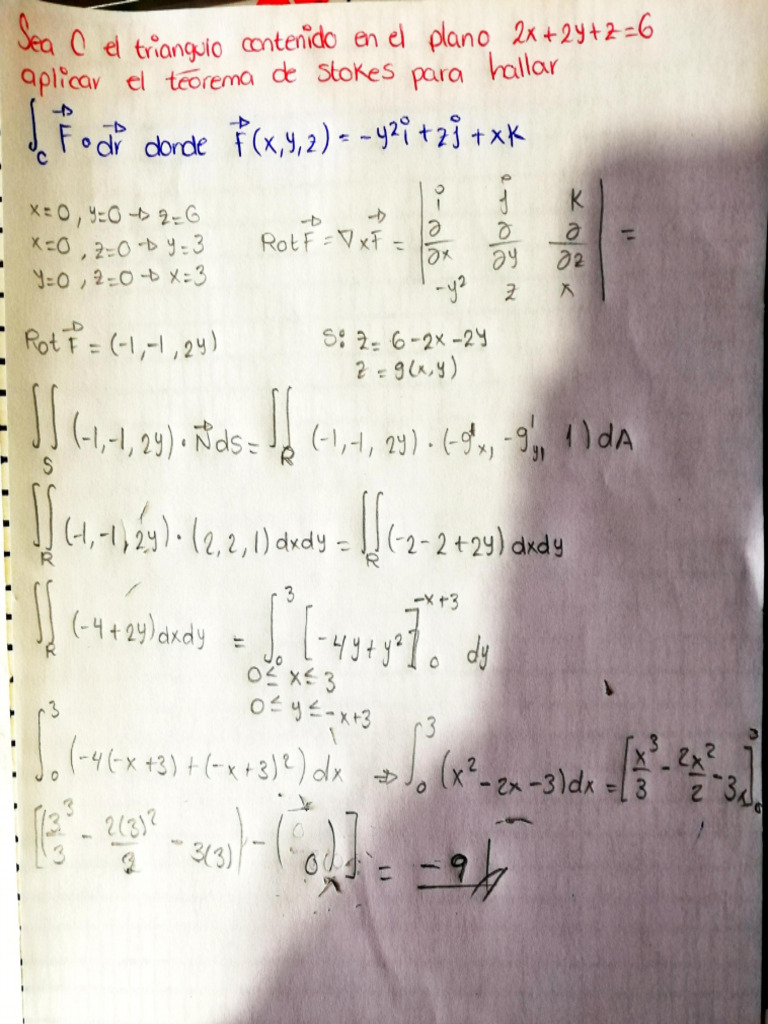 Sea C el triangulo contenido en el plano 2x+2y+z=6
aplicar el teorema de stokes para hallar
∫_C F⃗ ∘ dr⃗ donde F⃗(x,y,z) = -y²i + zj + xk
x=0, y=0 → z=6
x=0, z=0 → y=3
y=0, z=0 → x=3
Rot F⃗ = ∇ x F⃗ = | i j k ; ∂/∂x ∂/∂y ∂/∂z ; -y² z x | =
Rot F⃗ = (-1,-1,2y)
S: z = 6-2x-2y
z = g(x,y)
∬_S (-1,-1,2y) · N⃗ dS = ∬_R (-1,-1,2y) · (-g'x, -g'y, 1) dA
∬_R (-1,-1,2y) · (2,2,1) dxdy = ∬_R (-2-2+2y) dxdy
∬_R (-4+2y) dxdy = ∫_0^3 [-4y+y²]_0^{-x+3} dy
0 ≤ x ≤ 3
0 ≤ y ≤ -x+3
∫_0^3 (-4(-x+3)+(-x+3)²) dx ⇒ ∫_0^3 (x²-2x-3)dx = [x³/3 - 2x²/2 - 3x]_0^3
[(3³/3 - 2(3)²/2 - 3(3)) - (0)] = -9